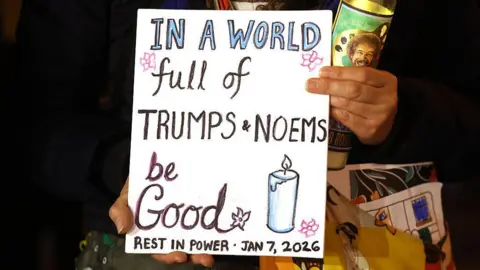 IN A WORLD
full of
TRUMPS & NOEMS
be
Good
REST IN POWER · JAN 7, 2026